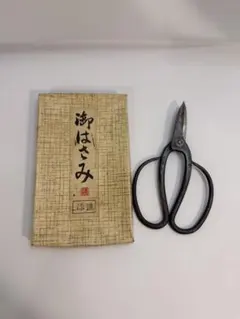 御はさみ